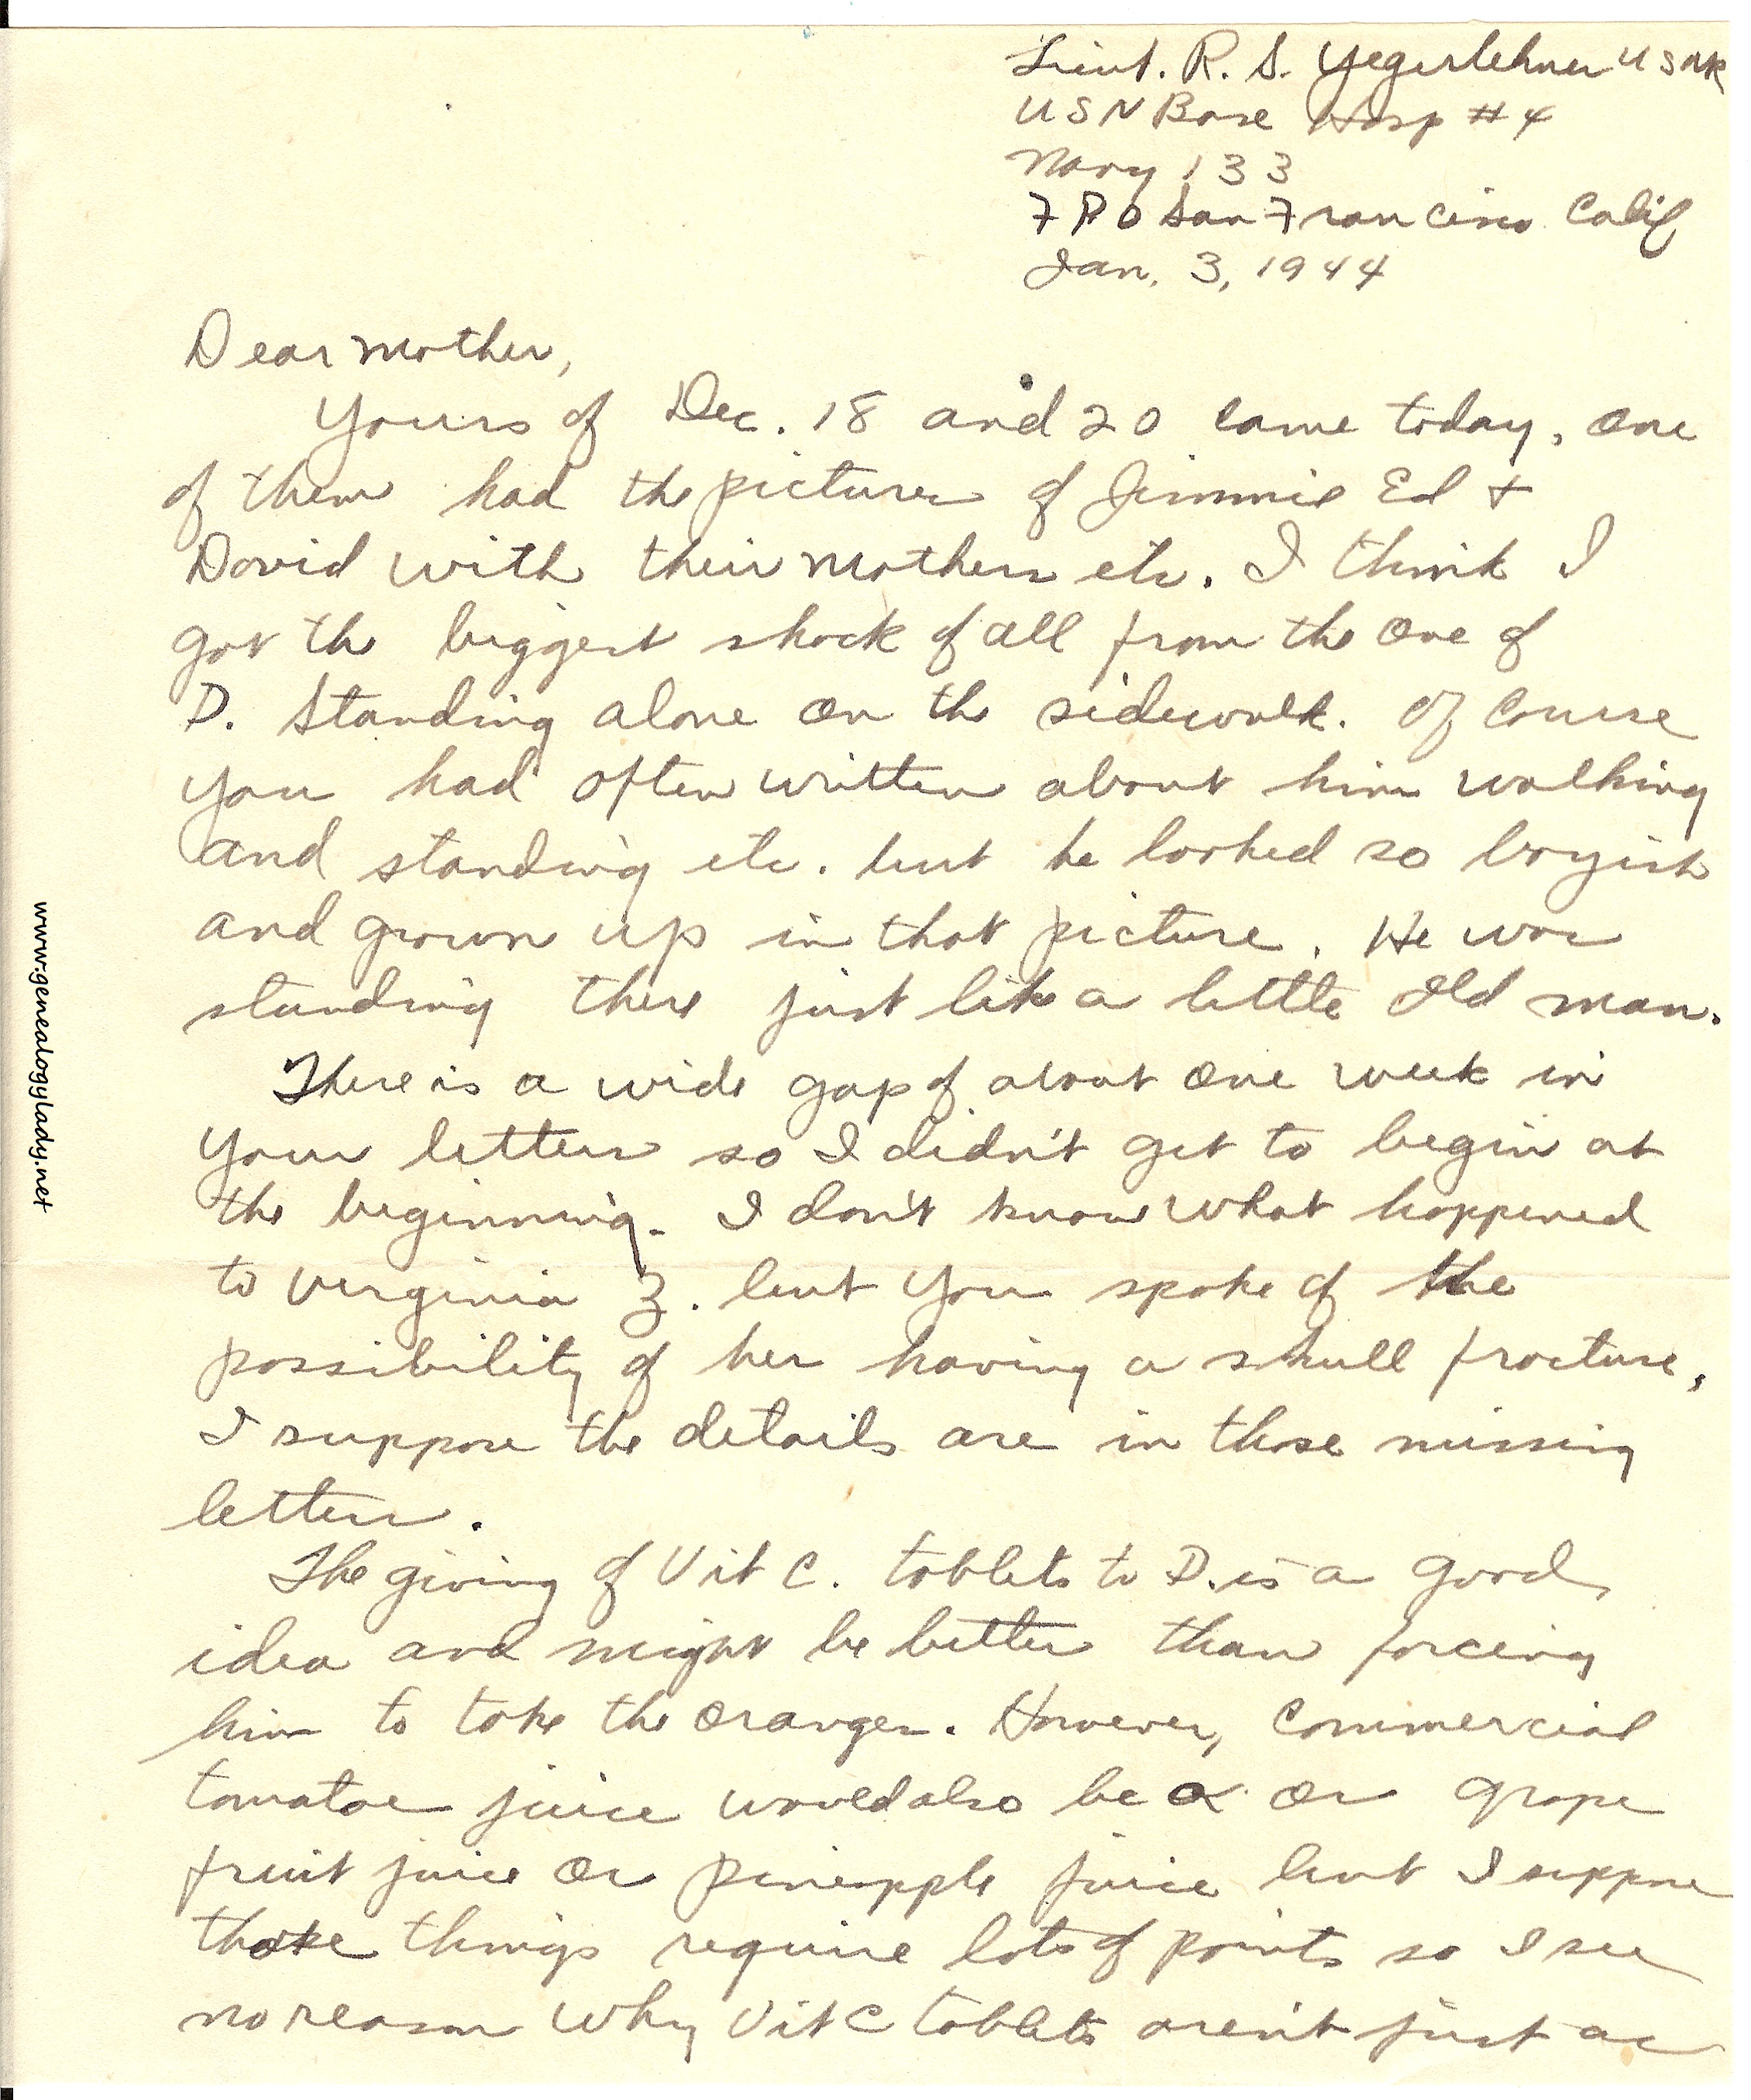 Lieut. R. S. Yegerlehner USNR
USN Base Hosp #4
Navy 133
FPO San Francisco Calif
Jan. 3, 1944
Dear Mother,
Yours of Dec. 18 and 20 came today, one
of them had the pictures of Jimmie Ed +
David with their mothers etc. I think I
got the biggest shock of all from the one of
D. standing alone on the sidewalk. Of course
you had often written about him walking
and standing etc. but he looked so boyish
and grown up in that picture. He was
standing there just like a little old man.
There is a wide gap of about one week in
your letters so I didn't get to begin at
the beginning. I don't know what happened
to Virginia Z. but you spoke of the
possibility of her having a skull fracture,
I suppose the details are in those missing
letters.
The giving of Vit C. tablets to D. is a good
idea and might be better than forcing
him to take the oranges. However, commercial
tomatoe juice would also be or grape
fruit juice or pineapple juice but I suppose
those things require lots of points so I see
no reason why Vit C tablets aren't just as
www.genealogylady.net